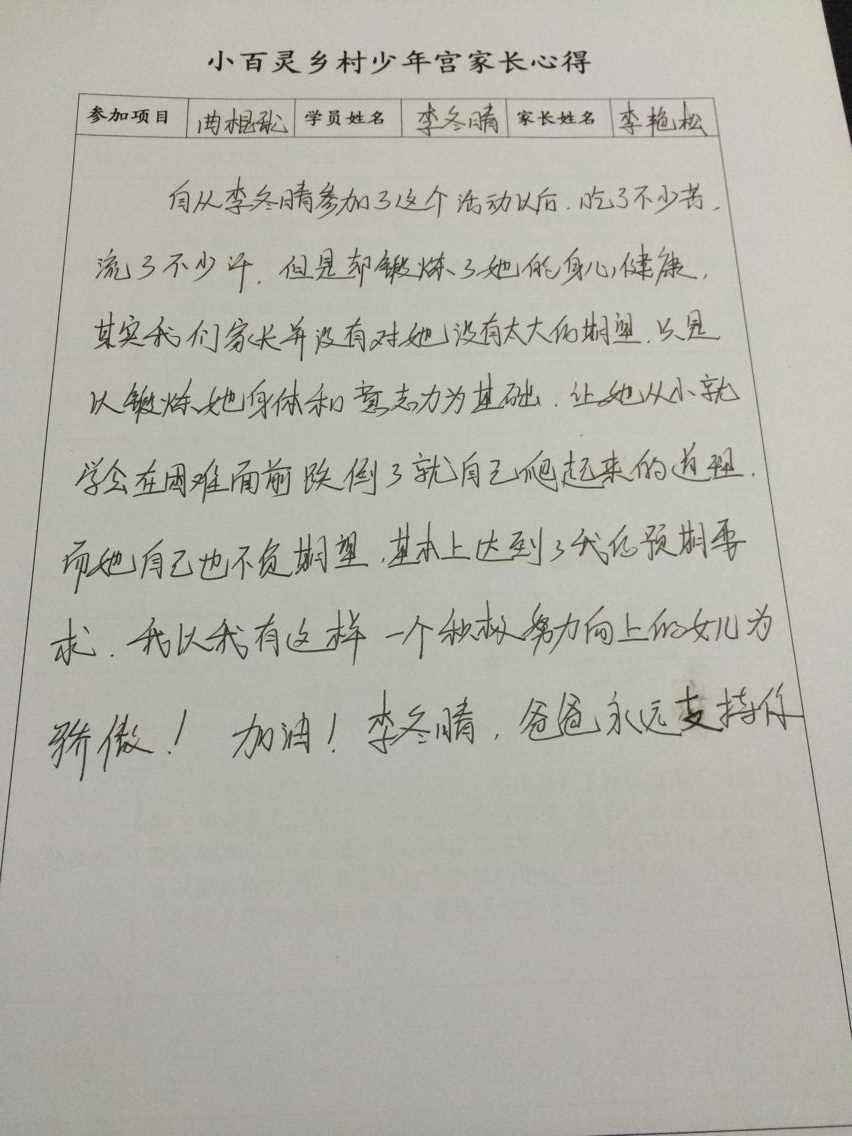 小百灵乡村少年宫家长心得
参加项目 曲棍球 学员姓名 李冬晴 家长姓名 李艳松
自从李冬晴参加了这个活动以后.吃了不少苦.
流了不少汗.但是却锻炼了她的身心健康.
其实我们家长并没有对她没有太大的期望.只是
以锻炼她身体和意志力为基础.让她从小就
学会在困难面前跌倒了就自己爬起来的道理.
而她自己也不负期望.基本上达到了我的预期要
求.我以我有这样一个积极努力向上的女儿为
骄傲!加油!李冬晴,爸爸永远支持你